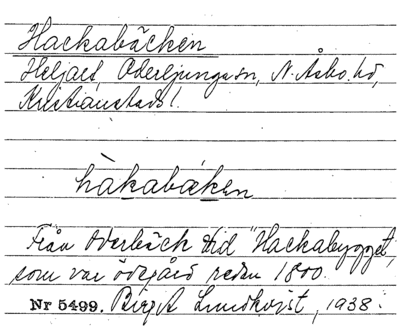 Hackabäcken
Oderljunga sn, N. Åsbo hd,
Kristianstads l.
hàkabäken
Från Oderbäck vid "Hackabygget,
som var ödegård redan 1800.
Nr 5499. Birgit Lundkvist, 1938.